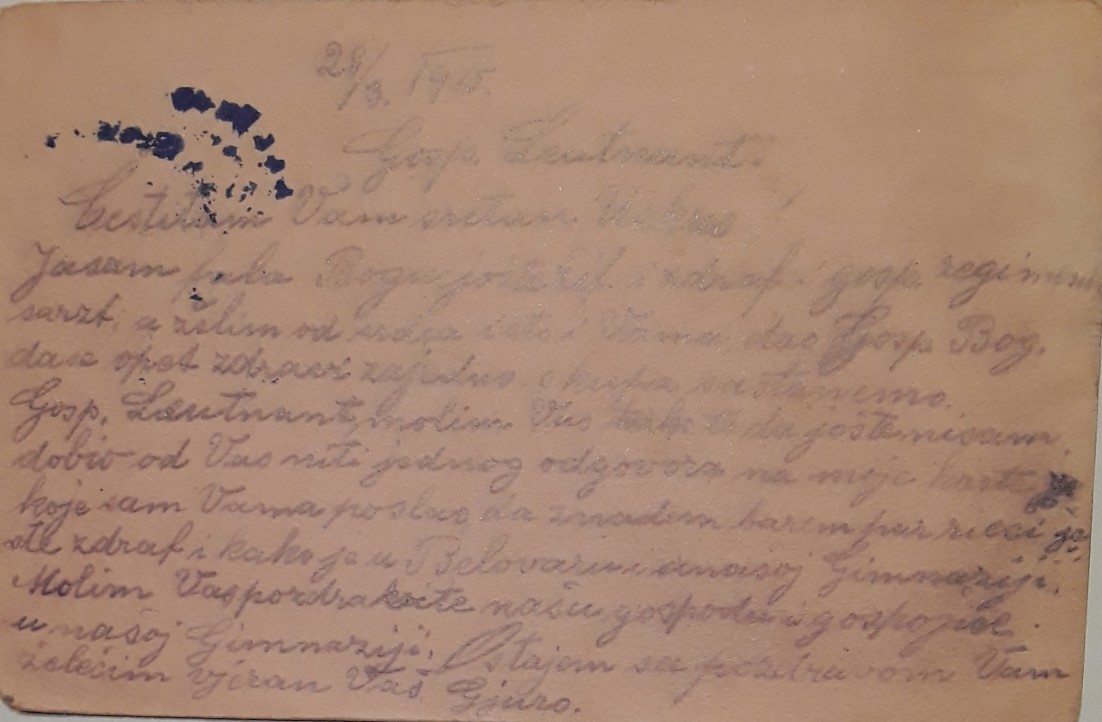 28/3. 1915.
Gosp. Leutnant.
Čestitam Vam sretan Uskrs!
Jasam fala Bogu jošte žif i zdraf i gosp. regiments
sarzt, a želim od srdca isto i Vama dao Gosp. Bog.
dase opet zdravi zajedno skupa sastanemo.
Gosp. Leutnant, molim Vas kako te da jošte nisam
dobio od Vas niti jednog odgovora na moje karte
koje sam Vama poslao da znadem barem par rieči je
ste zdraf i kako je u Belovaru i unašoj Gimnaziji.
Molim Vas pozdravite našu gospodu i gospojice
u našoj Gimnaziji. Ostajem sa pozdravom Vam
želećim vjeran Vaš Gjuro.